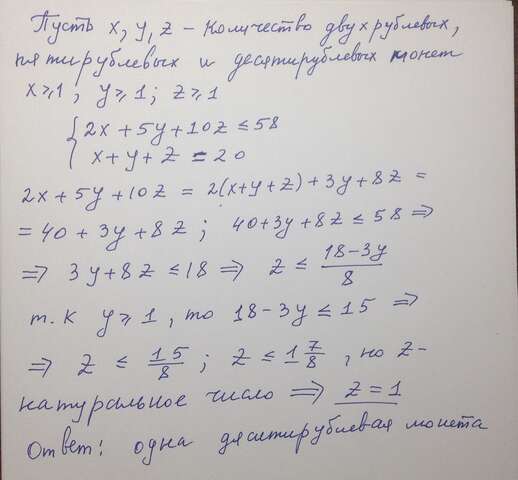 Пусть x, y, z - количество двухрублевых,
пятирублевых и десятирублевых монет
x⩾1, y⩾1; z⩾1
{ 2x + 5y + 10z ≤ 58
x + y + z = 20
2x + 5y + 10z = 2(x+y+z) + 3y + 8z =
= 40 + 3y + 8z; 40+3y+8z ≤ 58 ⇒
⇒ 3y+8z ≤ 18 ⇒ z ≤ (18-3y)/8
т.к y⩾1, то 18-3y ≤ 15 ⇒
⇒ z ≤ 15/8; z ≤ 1 7/8, но z-
натуральное число ⇒ z = 1
Ответ: одна десятирублевая монета